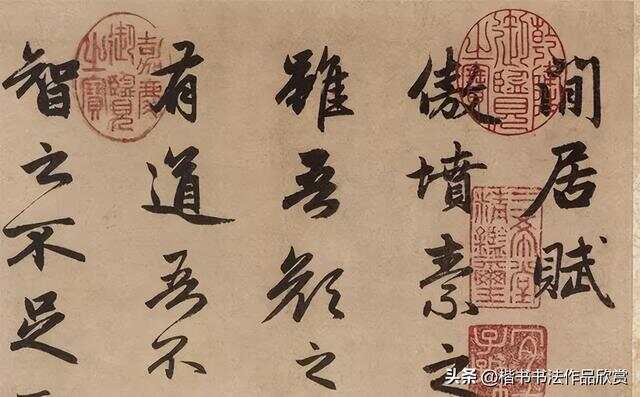 閒居賦
傲墳素之
雖吾顔之
有道吾不
智之不足
乾隆御覽之寶
三希堂精鑑璽
嘉慶御覽之寶
头条 @楷书书法作品欣赏